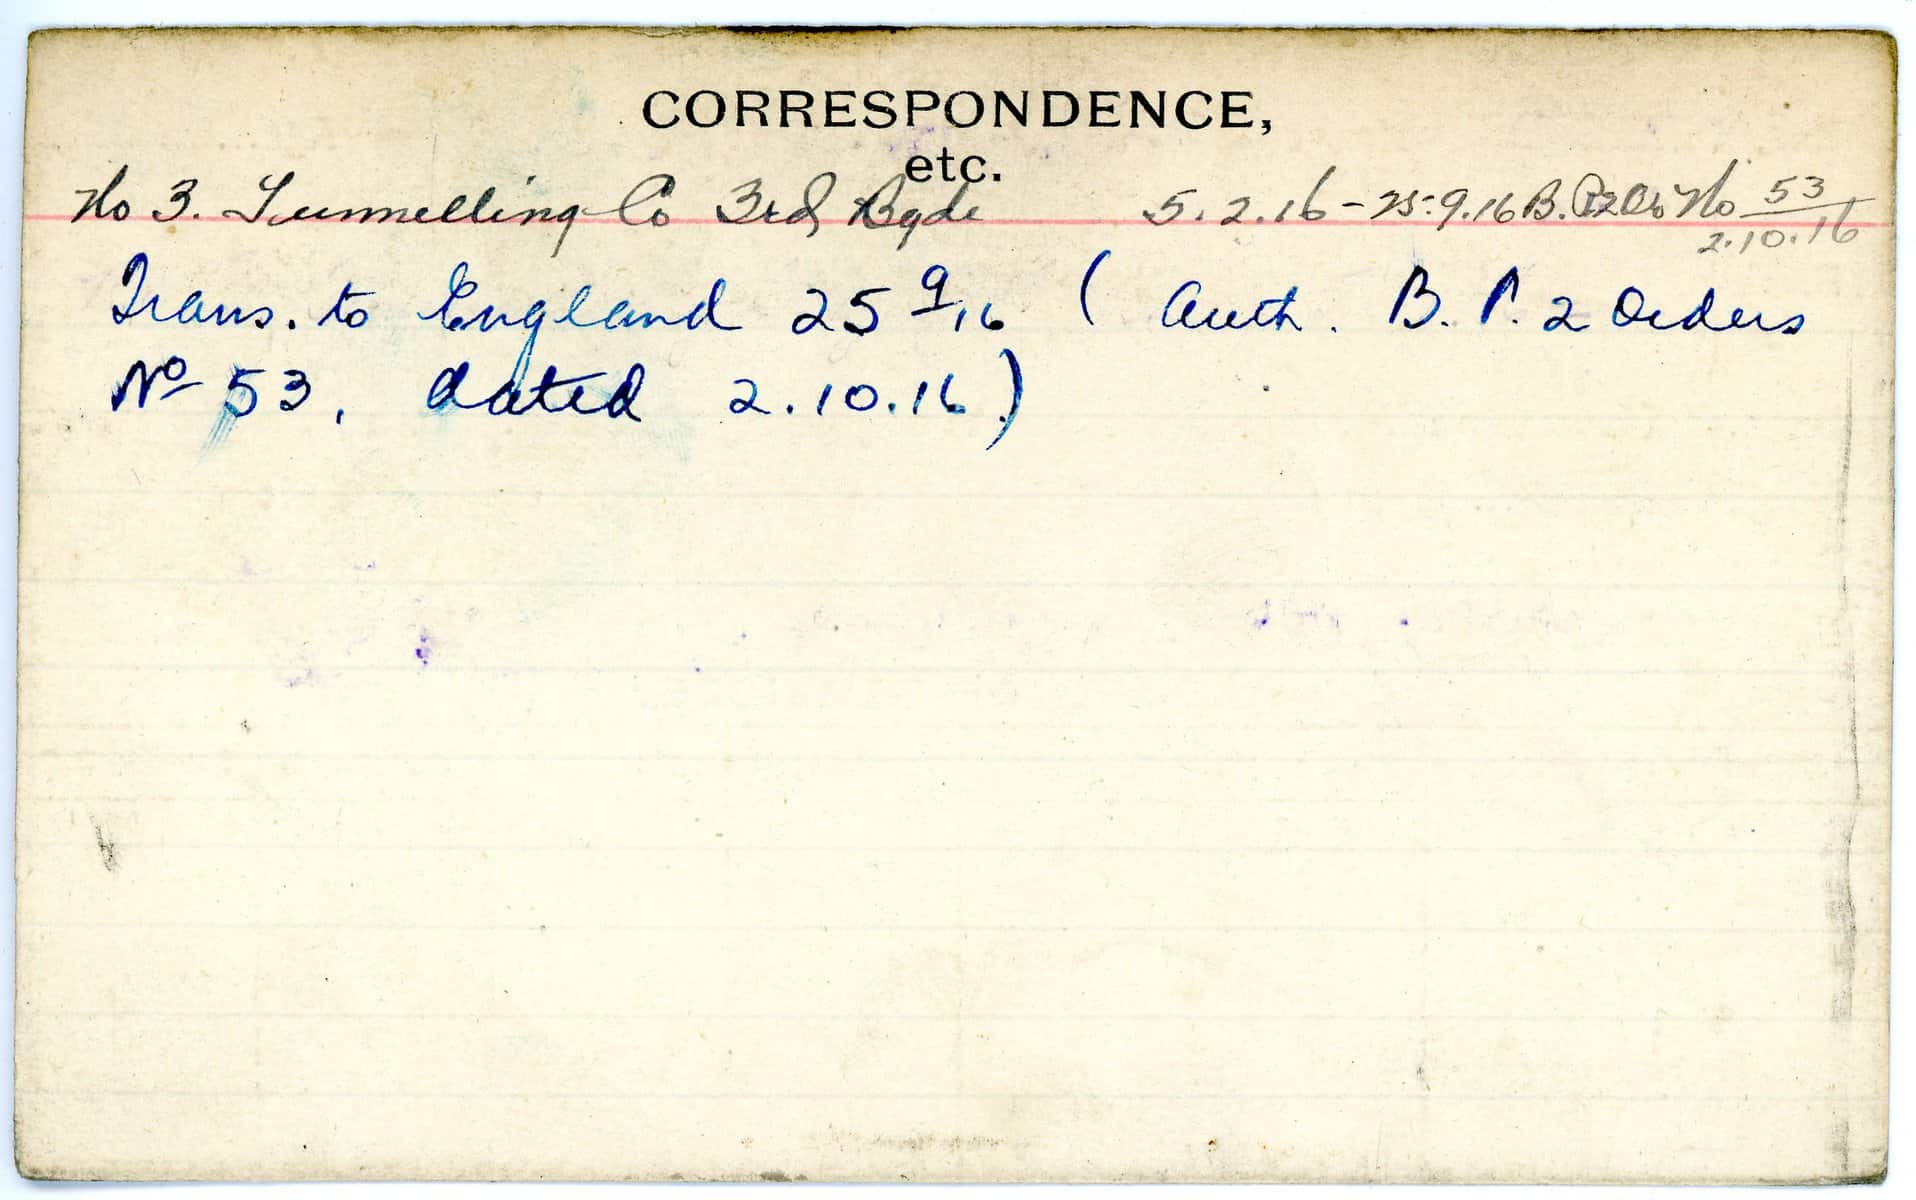 CORRESPONDENCE,
etc.
No 3. Tunnelling Co 3rd Bgde 5.2.16-25.9.16 B.P2 Or No 53/2.10.16
Trans. to England 25 9/16 ( Auth. B. P. 2 Orders
No 53, dated 2.10.16.)